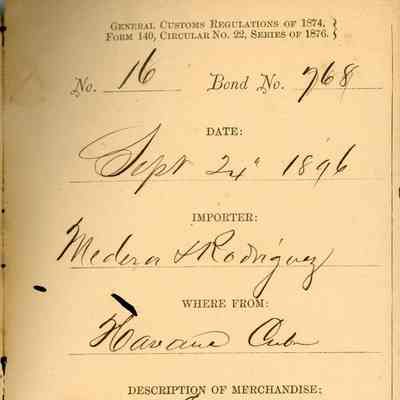 General Customs Regulations of 1874,
Form 140, Circular No. 22, Series of 1876.
No. 16 Bond No. 768
DATE:
Sept 24" 1896
IMPORTER:
Medera & Rodriguez
WHERE FROM:
Havana Cuba
DESCRIPTION OF MERCHANDISE: